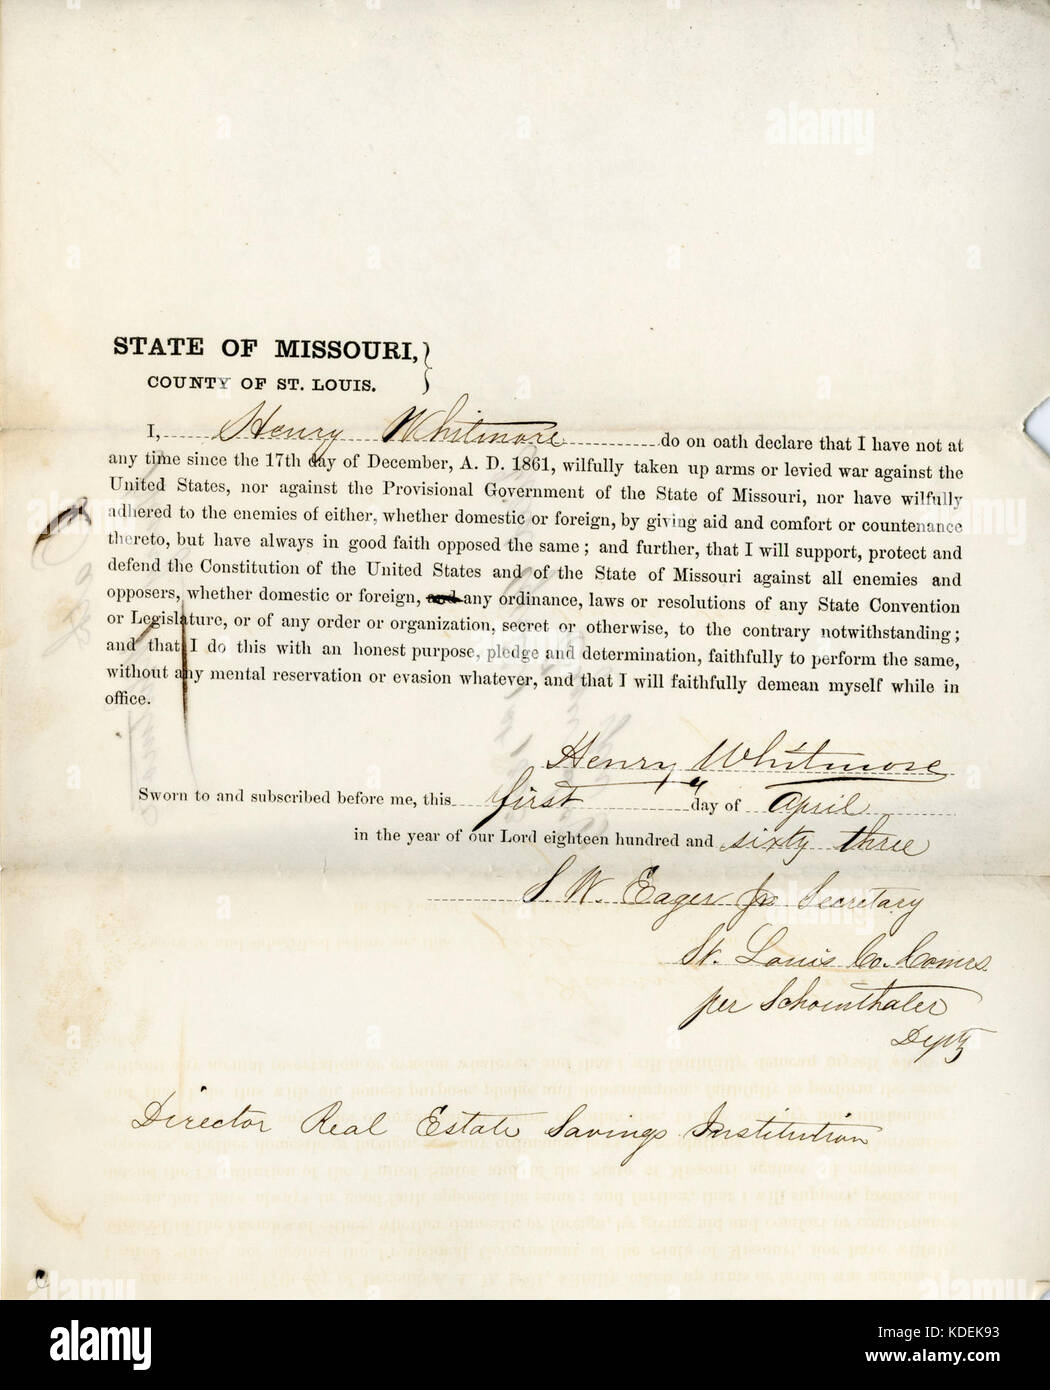 STATE OF MISSOURI,
COUNTY OF ST. LOUIS.
I, Henry Whitmore do on oath declare that I have not at
any time since the 17th day of December, A. D. 1861, wilfully taken up arms or levied war against the
United States, nor against the Provisional Government of the State of Missouri, nor have wilfully
adhered to the enemies of either, whether domestic or foreign, by giving aid and comfort or countenance
thereto, but have always in good faith opposed the same; and further, that I will support, protect and
defend the Constitution of the United States and of the State of Missouri against all enemies and
opposers, whether domestic or foreign, and any ordinance, laws or resolutions of any State Convention
or Legislature, or of any order or organization, secret or otherwise, to the contrary notwithstanding;
and that I do this with an honest purpose, pledge and determination, faithfully to perform the same,
without any mental reservation or evasion whatever, and that I will faithfully demean myself while in
office.
Henry Whitmore
Sworn to and subscribed before me, this first day of April
in the year of our Lord eighteen hundred and sixty three
S. W. Eager Jr Secretary
St. Louis Co. Comrs.
per Schoenthaler
Dpty
Director Real Estate Savings Institution
alamy
Image ID: KDEK93
www.alamy.com